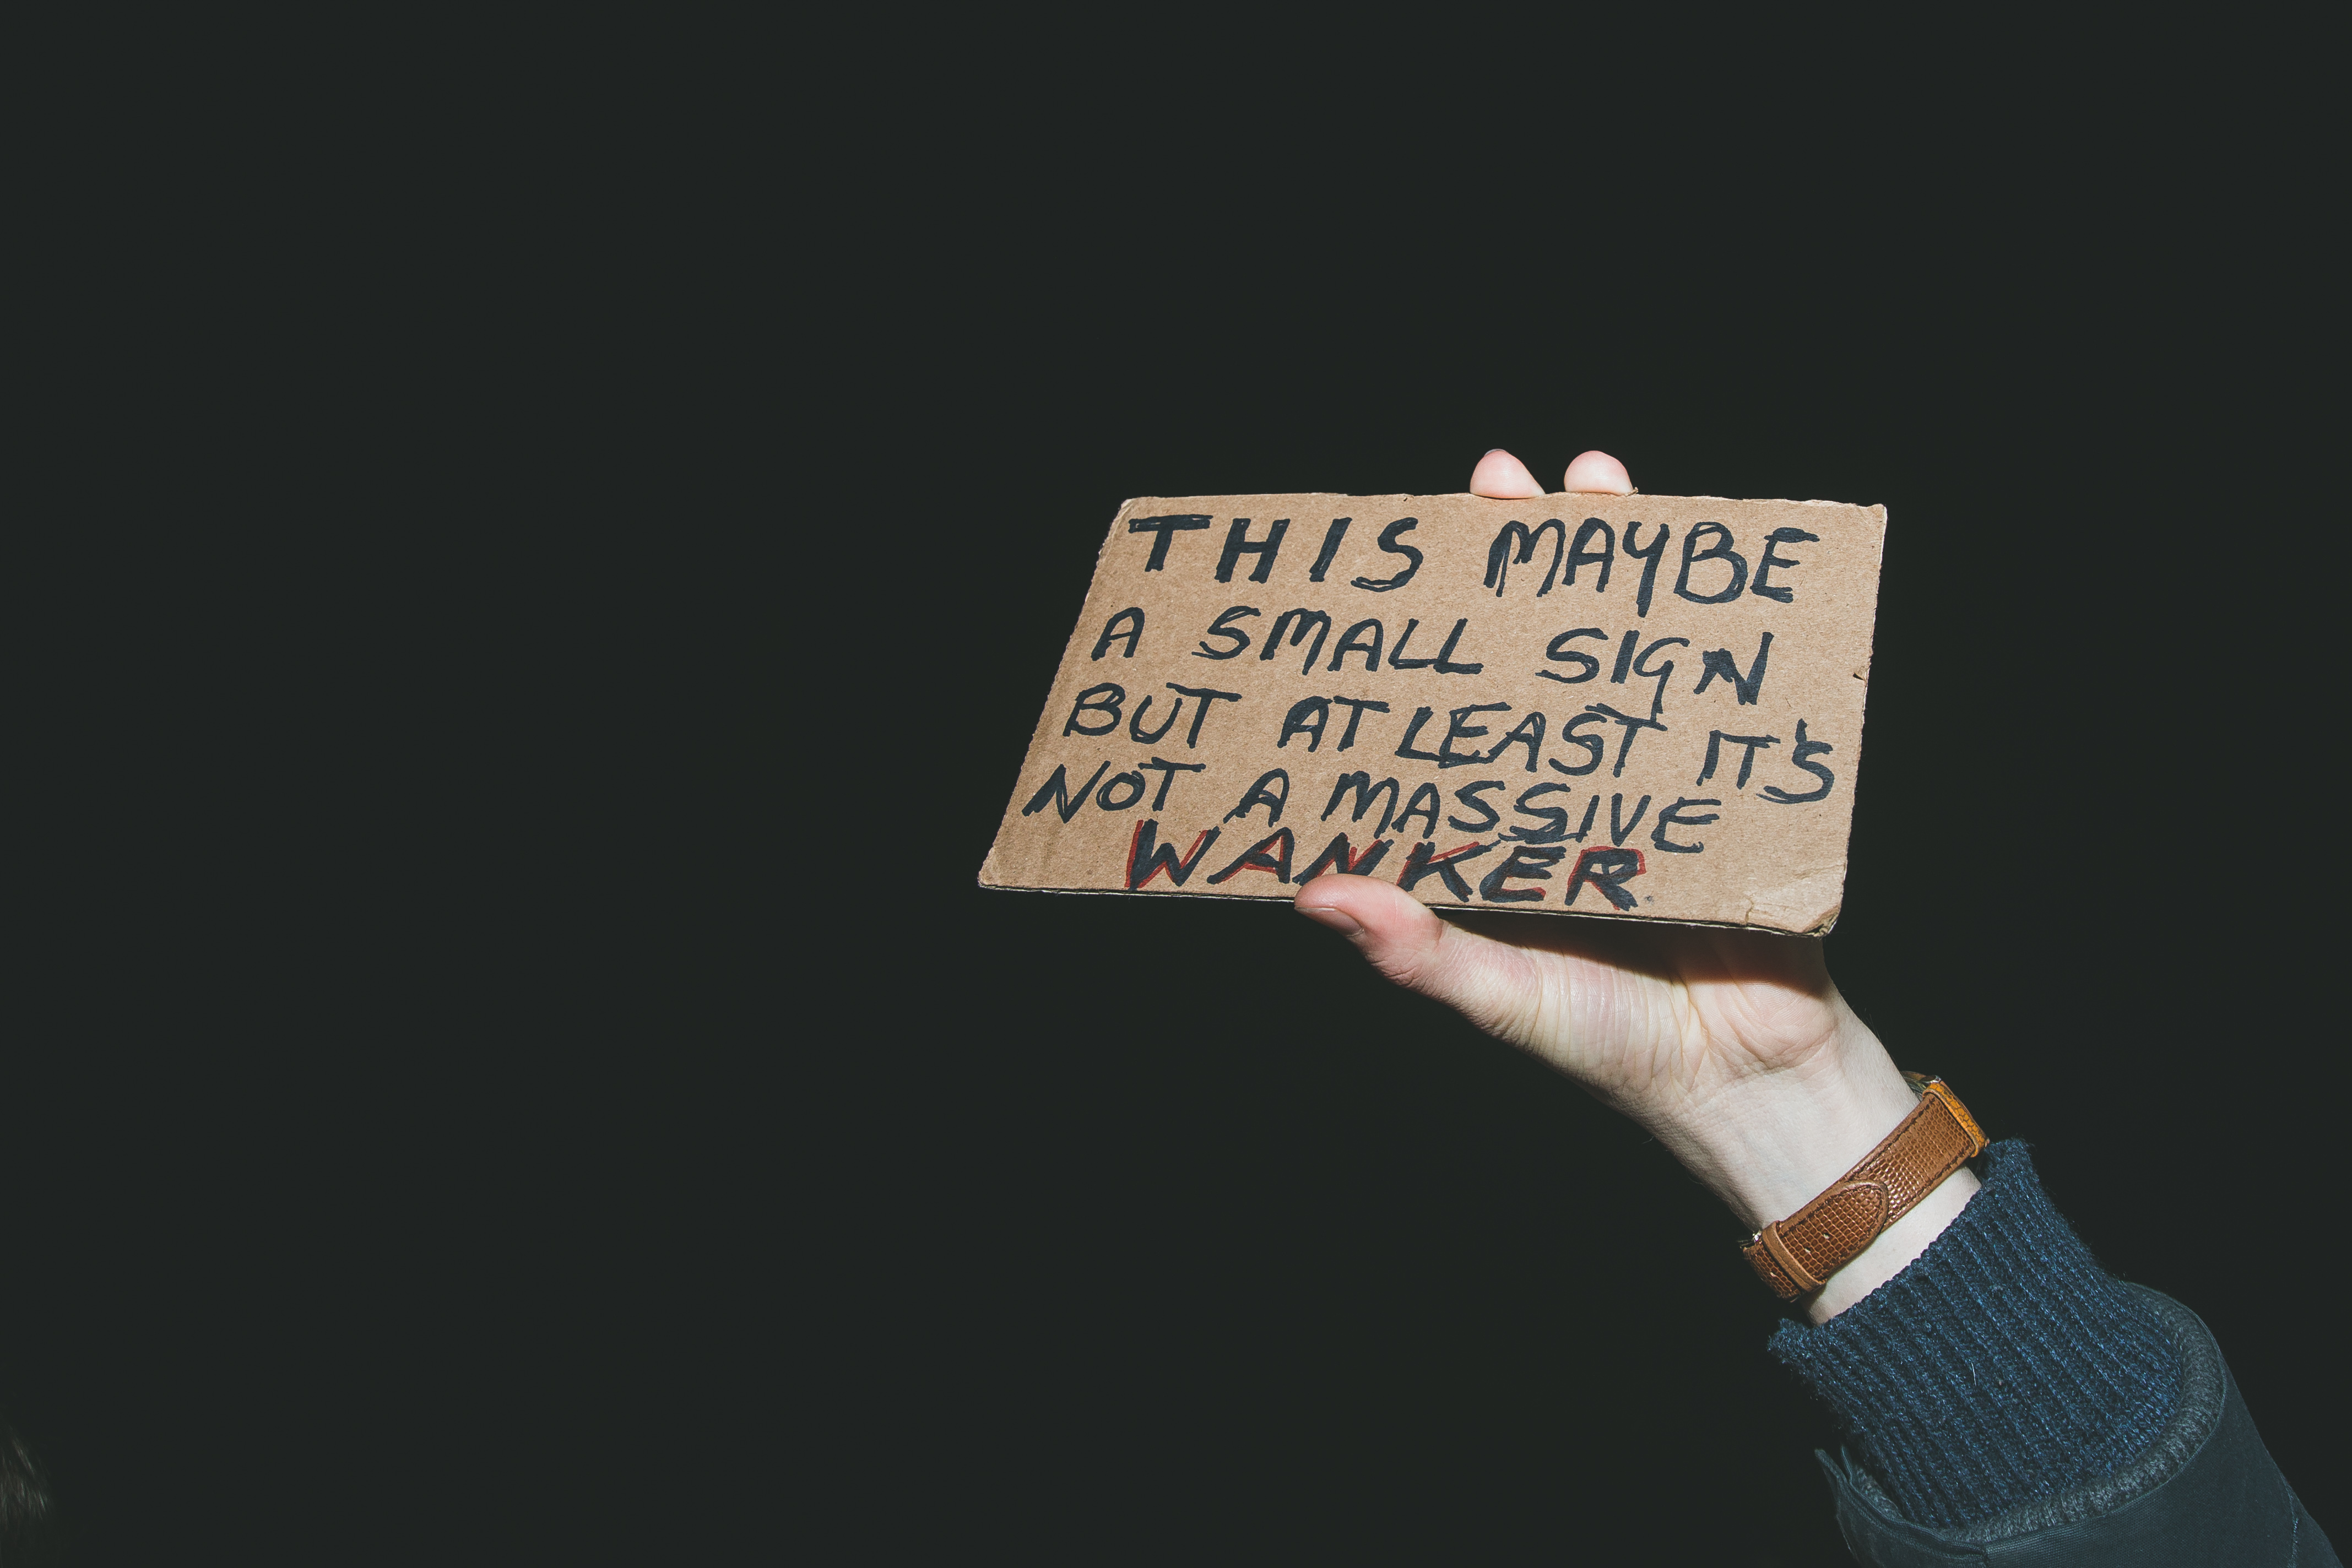 THIS MAYBE
A SMALL SIGN
BUT AT LEAST IT'S
NOT A MASSIVE
WANKER